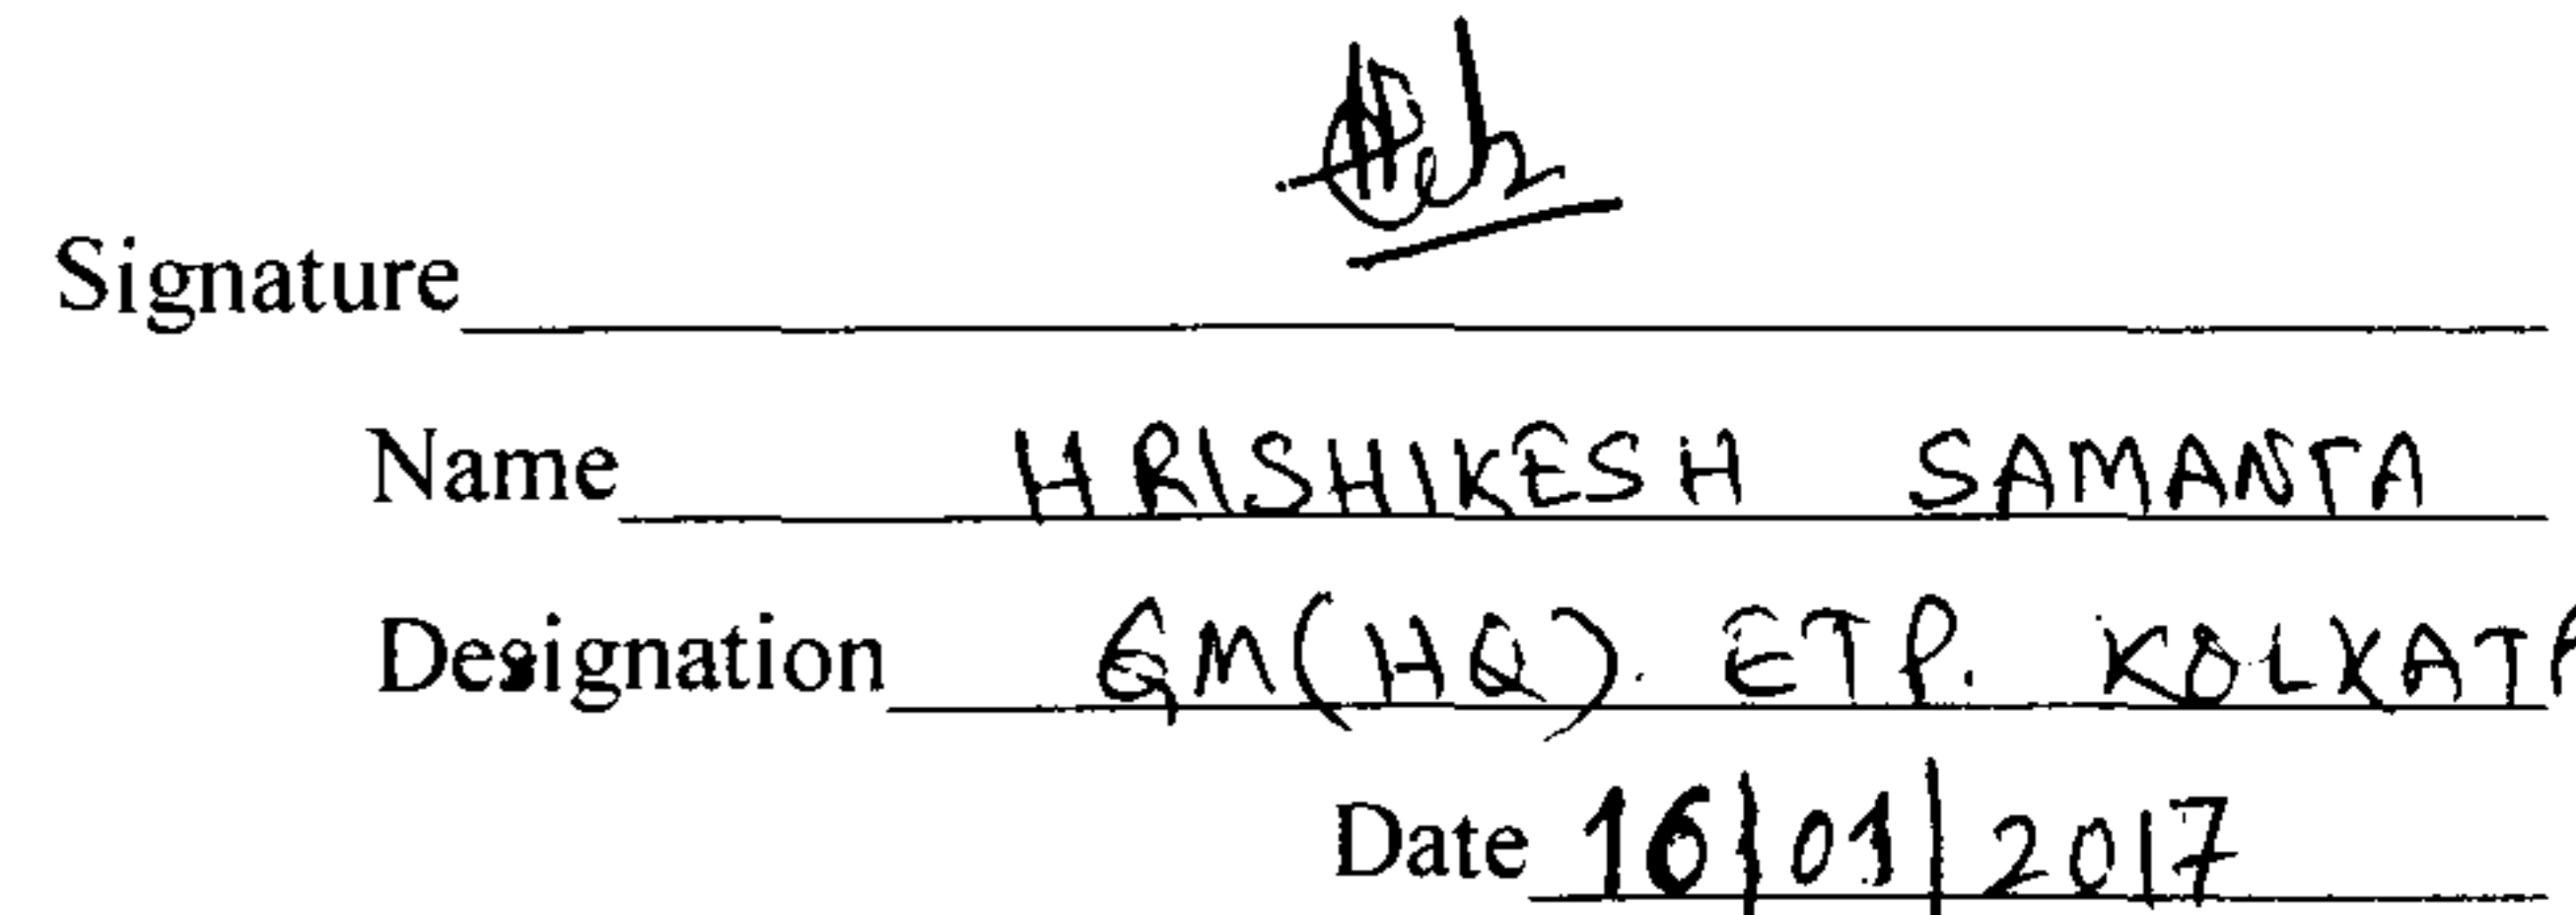 Signature
Name HRISHIKESH SAMANTA
Designation GM(HQ). ETP. KOLKATA
Date 16/01/2017